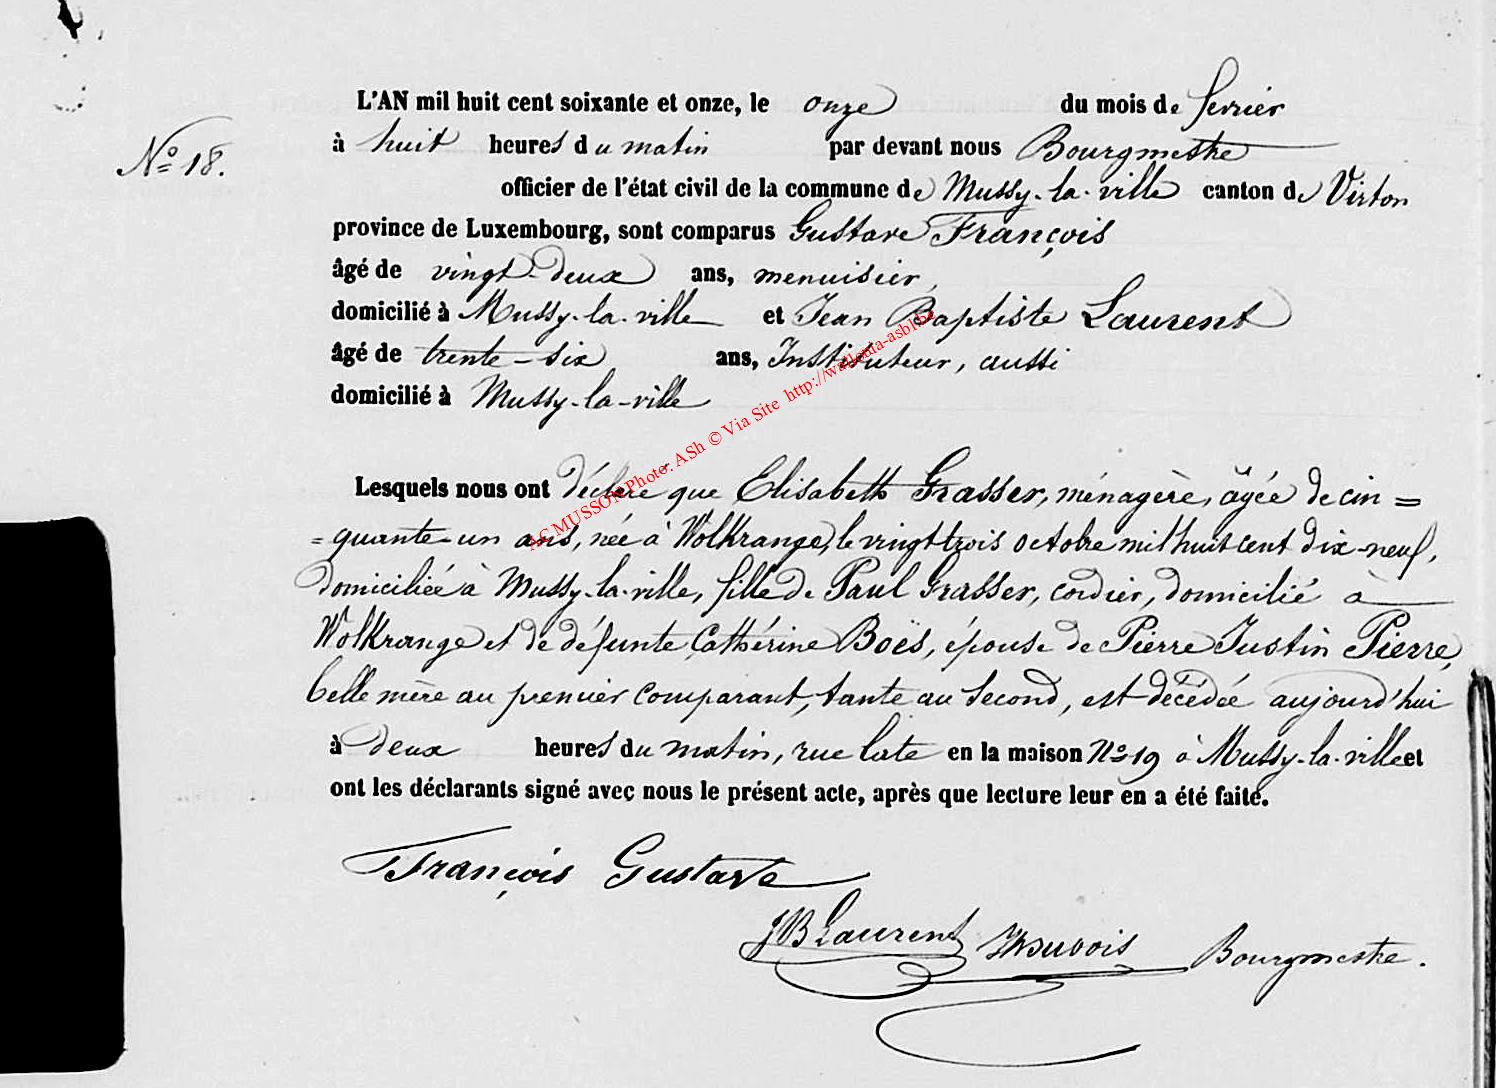 L'AN mil huit cent soixante et onze, le onze du mois de fevrier
No 18.
à huit heures du matin par devant nous Bourgmestre
officier de l'état civil de la commune de Mussy-la-ville canton de Virton
province de Luxembourg, sont comparus Gustave François
âgé de vingt-deux ans, menuisier,
domicilié à Mussy-la-ville et Jean Baptiste Laurent
âgé de trente-six ans, Instituteur, aussi
domicilié à Mussy-la-ville
AC MUSSON Photo. ASh © Via Site http://wallonia-asbl.be
Lesquels nous ont déclaré que Elisabeth Grasser, ménagère, âgée de cin=
=quante-un ans, née à Wolkrange, le vingt trois octobre mil huit cent dix-neuf,
domiciliée à Mussy-la-ville, fille de Paul Grasser, cordier, domicilié à
Wolkrange et de défunte Cathérine Boës, épouse de Pierre Justin Pierre,
belle mère au premier comparant, tante au second, est décédée aujourd'hui
à deux heures du matin, rue late en la maison No 19 à Mussy-la-ville et
ont les déclarants signé avec nous le présent acte, après que lecture leur en a été faite.
François Gustave
JB Laurent Bourgmestre.